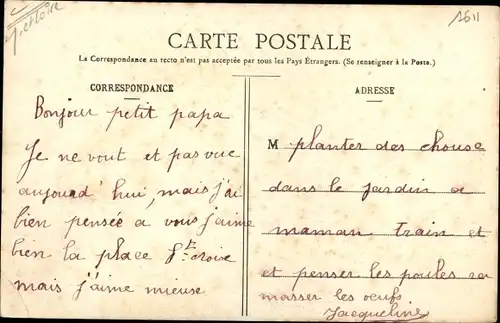 1611
CARTE POSTALE
La Correspondance au recto n'est pas acceptée par tous les Pays Étrangers. (Se renseigner à la Poste.)
CORRESPONDANCE
Bonjour petit papa
Je ne vout et pas vue
aujourd'hui, mais j'ai
bien pensée a vous j'aime
bien la place Ste croise
mais j'aime mieuse
ADRESSE
M planter des chouse
dans le jardin a
maman train et
et penser les poules ra
masser les oeufs
Jacqueline